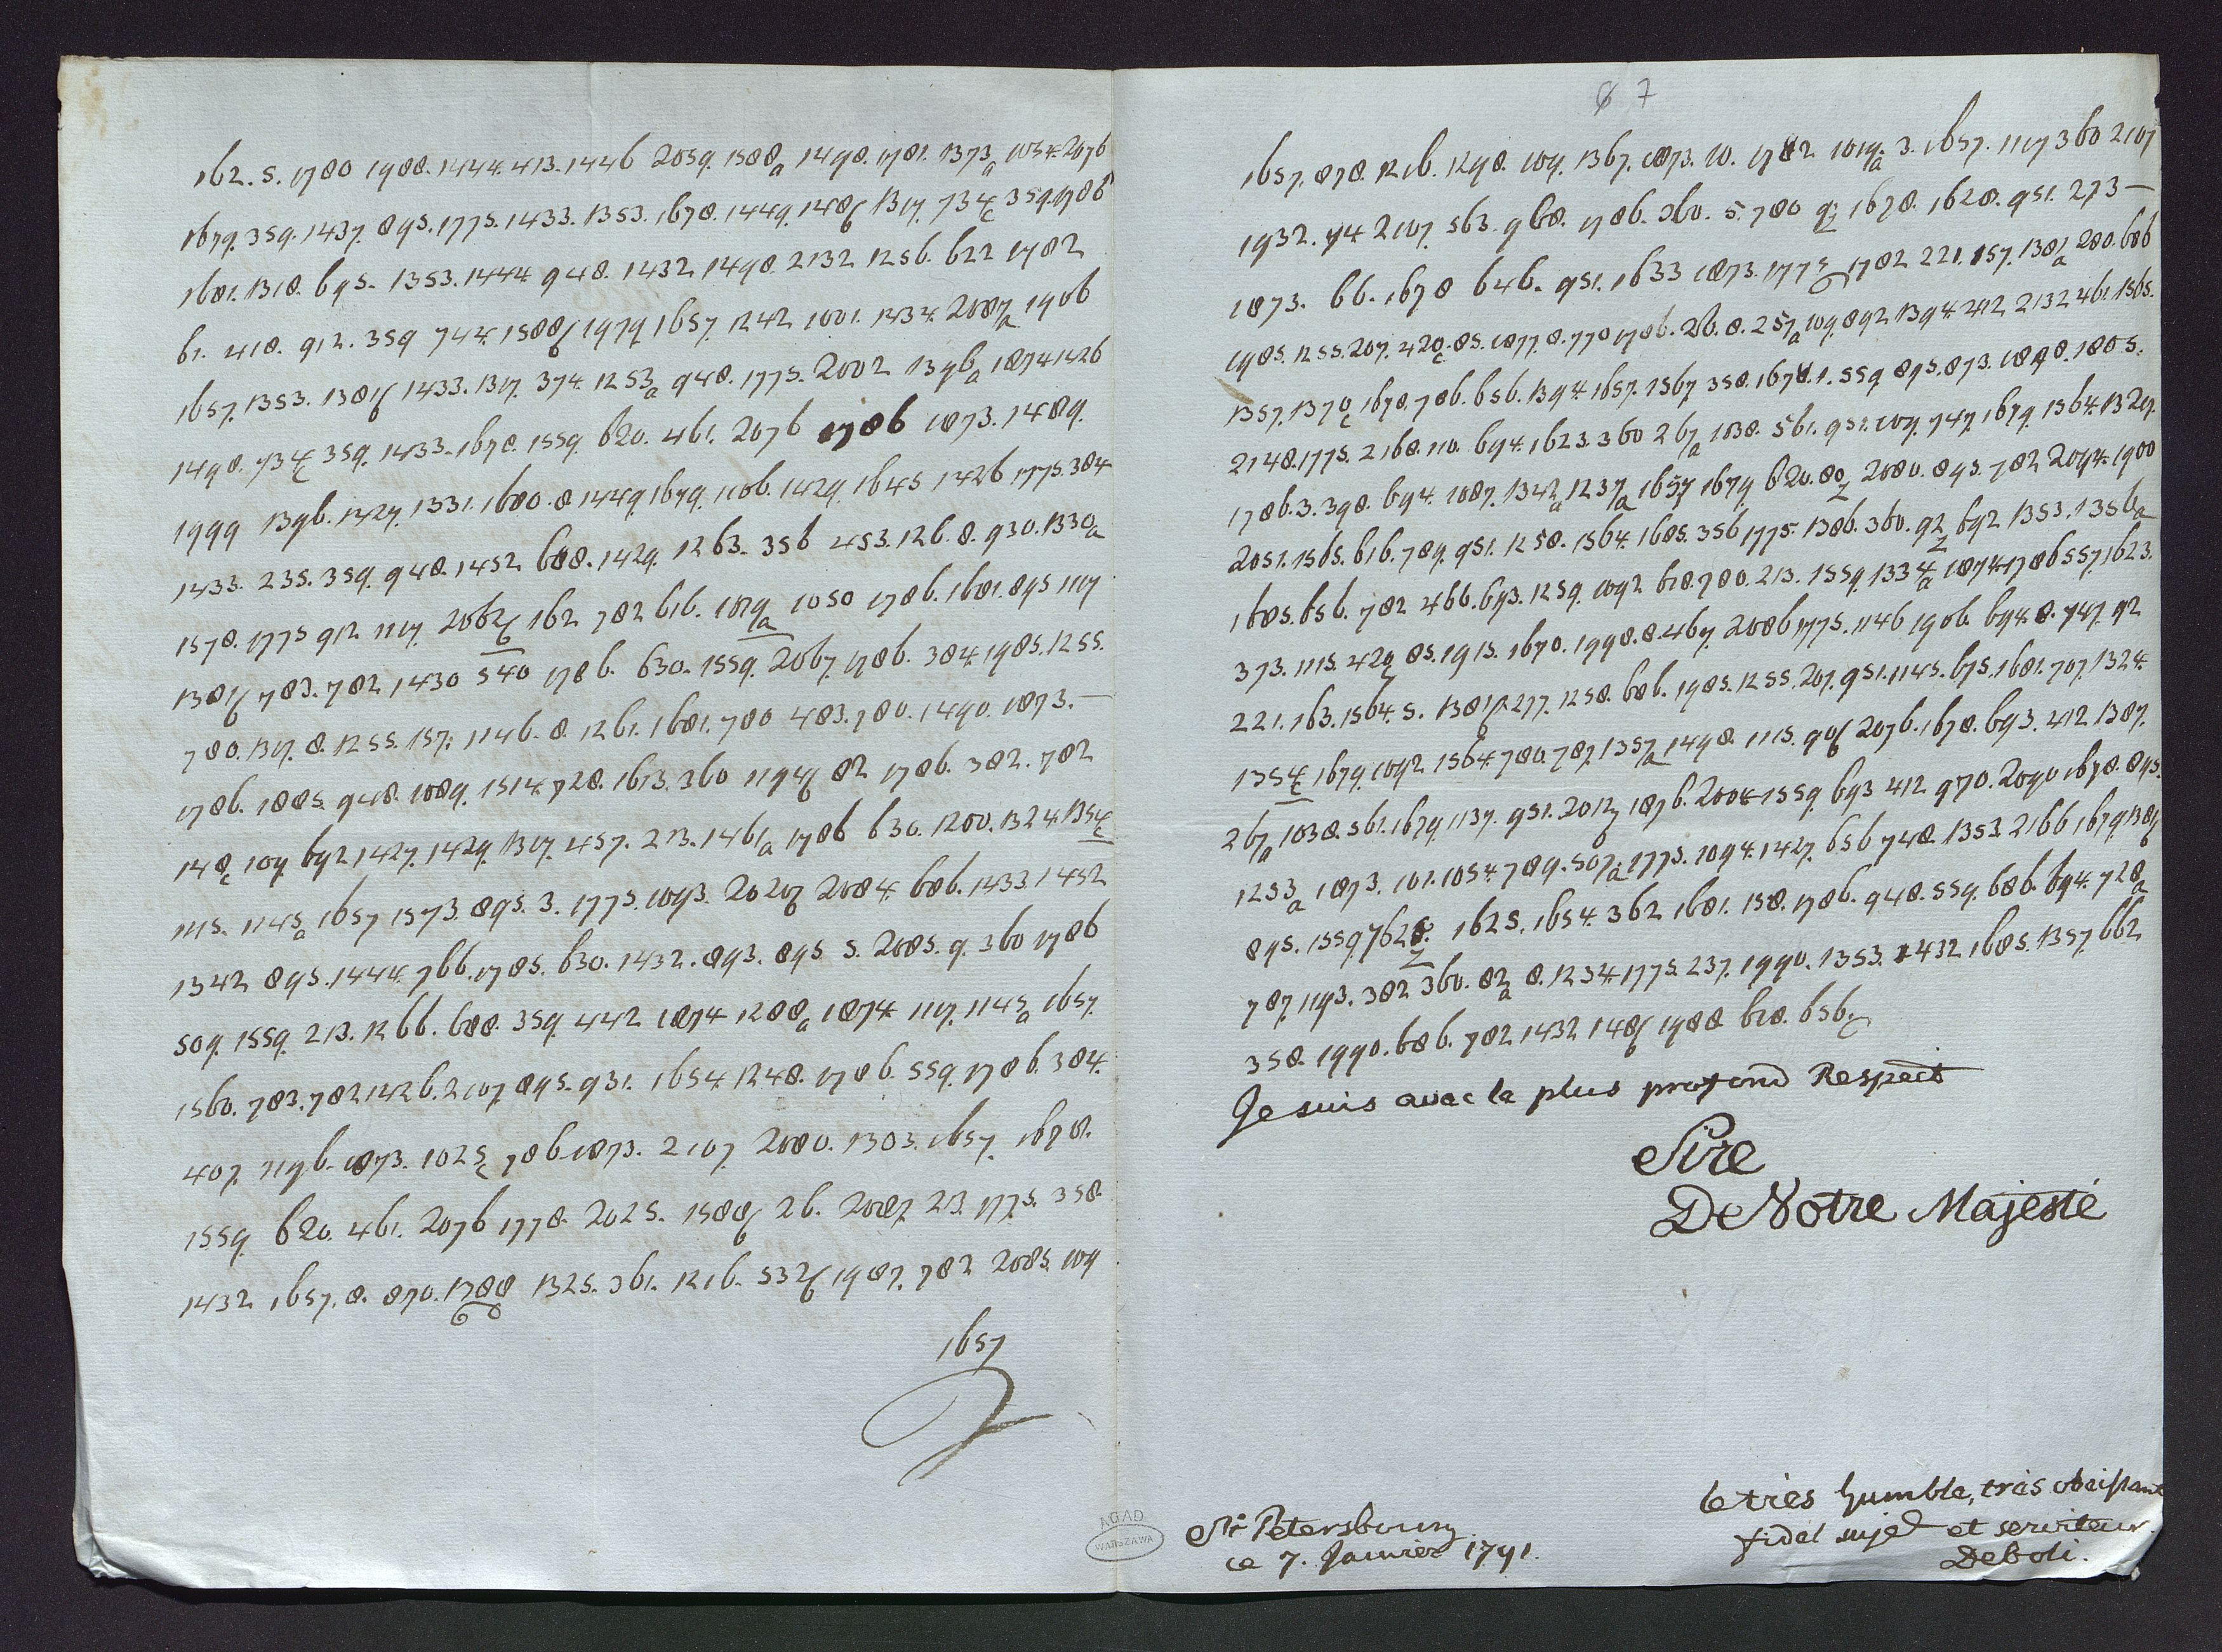 162. 5. 1780 1988. 1444. 413. 1446 2059. 1588a 1498. 1781. 1373a 1054. 2076
1679. 359. 1437. 895. 1775. 1433. 1353. 1678. 1449. 148f 1317. 734c 359. 1786
1681. 1318. 695. 1353. 1444 948. 1432 1498. 2132 1256. 622 1782
61. 418. 912. 359 744. 1588f 1979 1657. 1242 1001. 1434. 2087a 1906
1657. 1353. 1381f 1433. 1317. 374. 1253a 948. 1775. 2002 1396a 1874 1426
1498. 734c 359. 1433. 1678. 1559. 620. 461. 2076 1786 1873. 1489.
1999 1396. 1427. 1331. 1680. 8 1449 1679. 1106. 1429. 1645 1426 1775. 384
1433. 235. 359. 948. 1452 688. 1429. 1263. 356 453. 126. 8. 930. 1330a
1578. 1775 912 1117. 2062f 162 782 616. 1879a 1050 1786. 1681. 895 1117
1381f 783. 782 1430 540 1786. 630. 1559. 2067. 1786. 384. 1985. 1255.
780. 1317. 8. 1255. 157. 1146. 8. 1261. 1681. 780 483. 780. 1490. 1873. —
1786. 1885. 948. 1089. 1514. 728. 1613. 360 1194f 82 1786. 382. 782
148c 109. 692 1427. 1429. 1317. 457. 213. 1461a 1786 630. 1200. 1324 1354c
1115. 1145a 1657 1573. 895. 3. 1775. 1093. 2020f 2084. 686. 1433 1452
1342 895. 1444. 766. 1785. 630. 1432. 893. 895 5. 2085. 9. 360 1786
509. 1559. 213. 1266. 688. 359. 442 1874 1288a 1874. 1117. 1145a 1657.
1560. 783. 782 1426. 2107. 895. 931. 1654. 1248. 1786. 559. 1786. 384.
407. 1196. 1873. 1025c 786. 1873. 2107. 2080. 1303. 1657. 1678.
1559. 620. 461. 2076 1778. 2025. 1588f 26. 2087. 213. 1775. 358.
1432 1657. 8. 870. 1788 1325. 361. 1216. 532f 1987. 782 2085. 109
1657
7
1657. 878. 1216. 1298. 109. 1367. 1873. 10. 1782 1019a. 3. 1657. 1117 360 2107
1932. 94 2107. 563. 968. 1786. 360. 5. 780 92 1678. 1628. 951. 273 —
1873. 66. 1678 646. 951. 1633 1873. 1775 1782 221. 157. 1381a 280. 686
1985. 1255. 207. 420c. 85. 1877. 8. 770 1786. 26. 8. 257a 109. 892 1394. 212 2132 461. 1565.
1357. 1370c 1678. 786. 656. 1394. 1657. 1567 358. 1678. 1. 559 895. 873. 1898. 1805.
2148. 1775. 2168. 110. 694. 1623. 360 267a 1038. 561. 951. 109. 747. 1679. 1564. 1329.
1786. 3. 398. 694. 1087. 1342a 1237a 1657 1679 620. 80z 2080. 895. 782 2094. 1900
2051. 1565. 616. 789. 951. 1258. 1564. 1685. 356 1775. 1386. 360. 92z 692 1353. 1356a
1685. 656. 782 466. 693. 1259. 1092 618. 780. 213. 1559. 1334a 1874. 1786 557. 1623.
373. 1115. 429z 85. 1915. 1670. 1998. 8. 467. 2086 1775. 1146 1906. 694. 8. 747. 92
221. 163. 1564. 5. 1381f. 277. 1258. 686. 1985. 1255. 207. 951. 1145. 675. 1681. 707. 1324.
1354c 1679. 1092 1564. 780. 787. 1357a 1498. 1115. 90f 2076. 1678. 693. 412. 1387.
267a 1038. 561. 1679. 1137. 951. 2012z 1876. 2004. 1559. 693 412 970. 2090 1678. 895.
1253a 1873. 101. 1054. 789. 507a 1775. 1094. 1427. 656 748. 1353. 2166 1679 1381f
895. 1559. 7628z. 1625. 1654. 362 1681. 158. 1786. 948. 559. 686. 694. 728a
787. 1193. 382 360. 82a 8. 1234. 1775. 237. 1990. 1353. 1432 1685. 1357. 662
358. 1990. 686. 782 1432 148f 1988 618. 656.
Je suis avec la plus profond Respect
Sire
De Votre Majesté
le très humble, très obeissant
fidel sujet et serviteur
Deboli.
St Petersbourg
ce 7. Janvier 1791.
AGAD
WARSZAWA